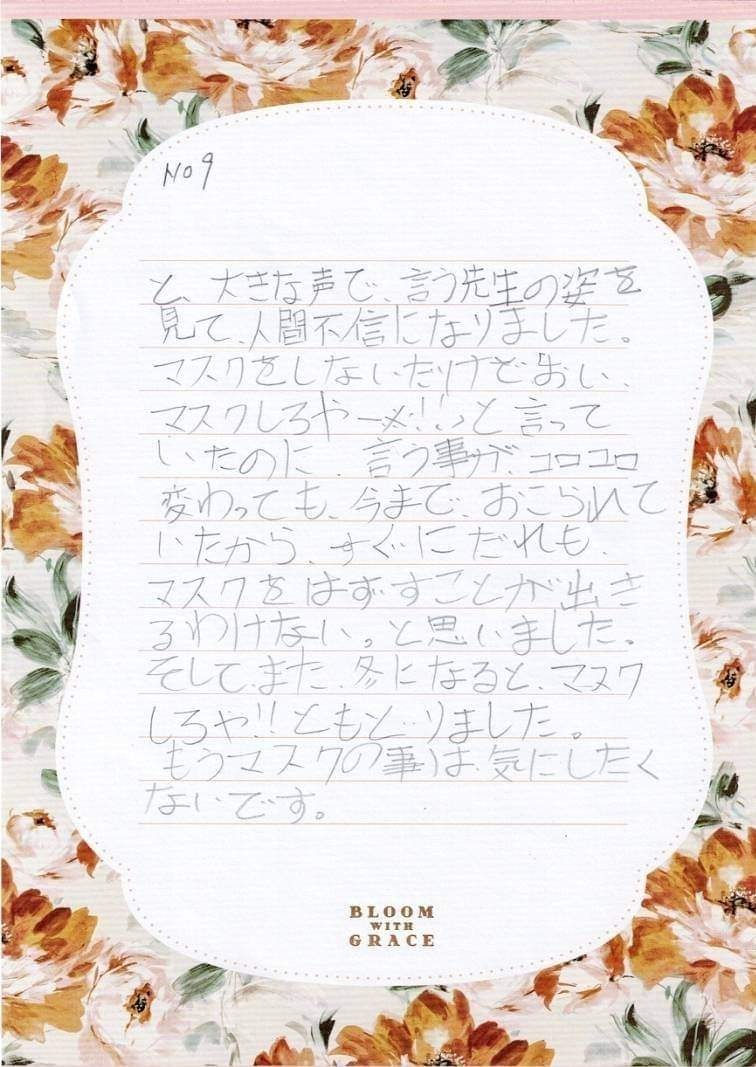 No 9
と、大きな声で、言う先生の姿を
見て、人間不信になりました。
マスクをしないだけで「おい、
マスクしろやーメ!!」と言って
いたのに、言う事が、コロコロ
変わっても、今まで、おこられて
いたから、すぐにだれも、
マスクをはずすことが出き
るわけない。と思いました。
そして、また、冬になると、マスク
しろや!!ともど…りました。
もうマスクの事は、気にしたく
ないです。
BLOOM
WITH
GRACE